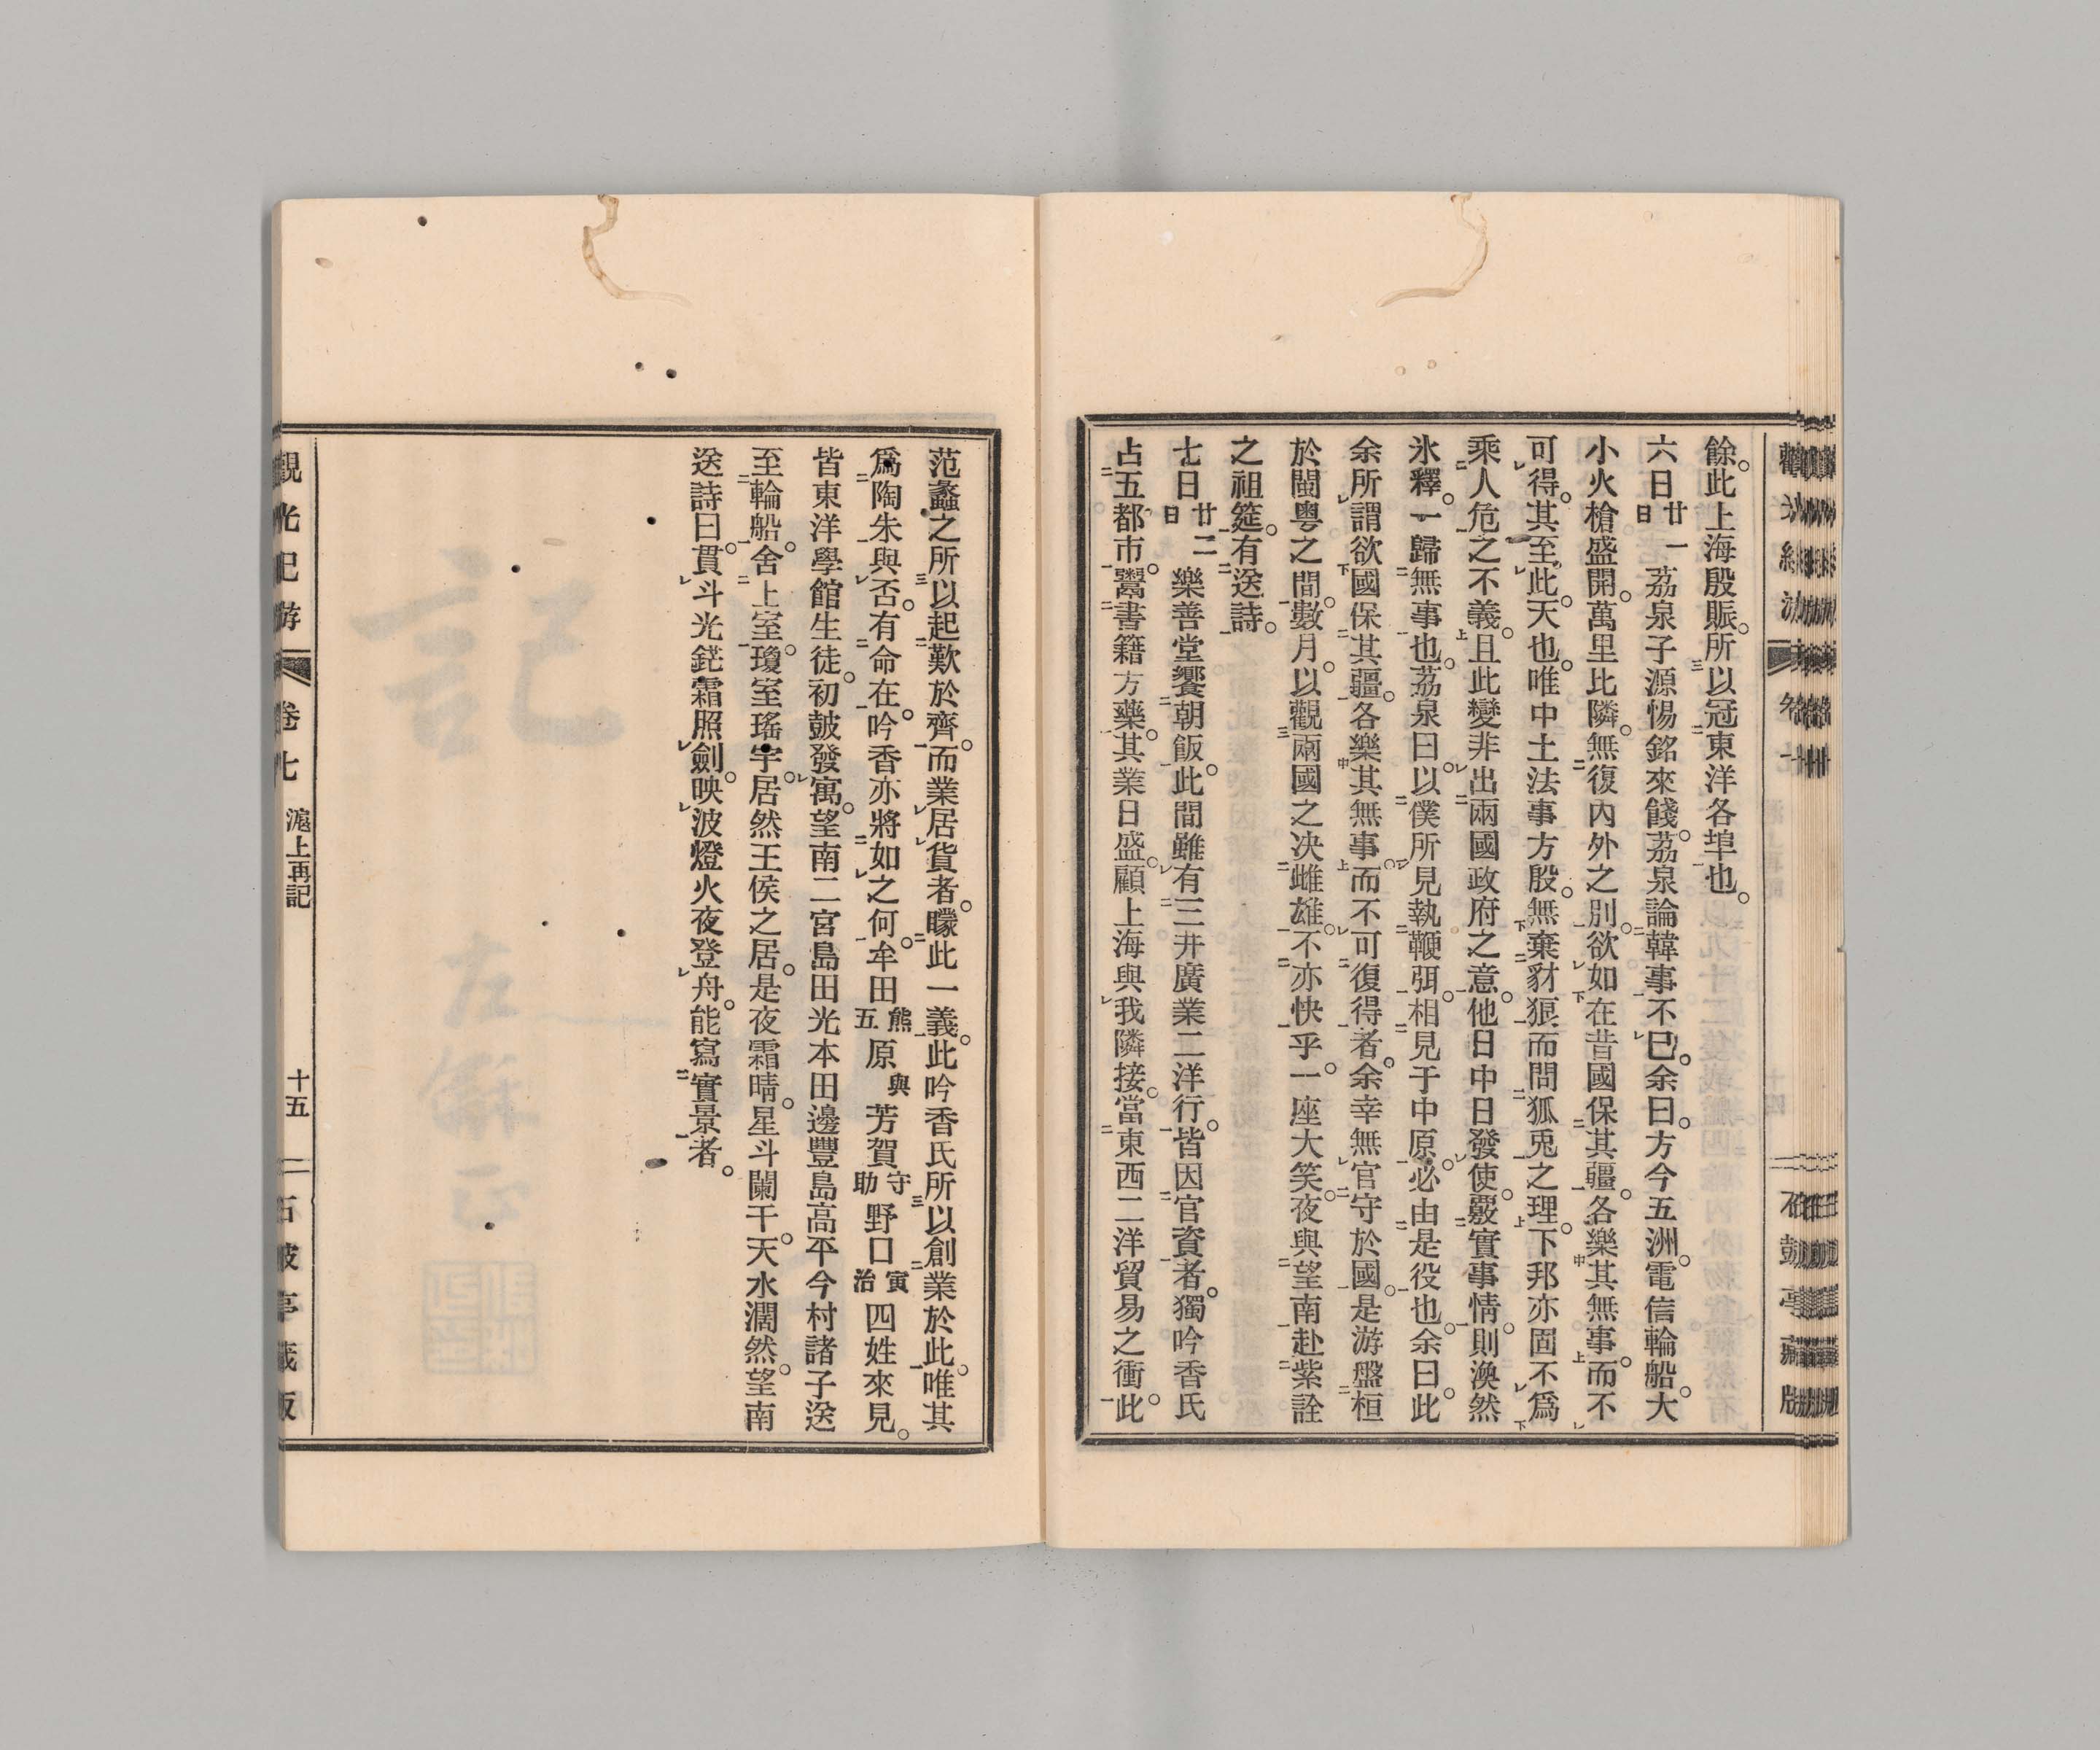 餘。此上海殷賑。所以冠東洋各埠也。
六日廿一日荔泉子源惕銘來餞。荔泉論韓事不已。余曰。方今五洲。電信輪船。大
小火槍盛開。萬里比隣。無復內外之別。欲如在昔國保其疆。各樂其無事。而不
可得。其至此。天也。唯中土法事方殷。無棄豺狼而問狐兎之理。下邦亦固不爲
乘人危之不義。且此變非出兩國政府之意。他日中日發使。覈實事情。則渙然
氷釋。一歸無事也。荔泉曰。以僕所見執鞭弭。相見于中原。必由是役也。余曰。此
余所謂欲國保其疆。各樂其無事。而不可復得者。余幸無官守於國。是游盤桓
於閩粤之間。數月。以觀兩國之决雌雄。不亦快乎。一座大笑。夜與望南赴紫詮
之祖筵。有送詩。
七日廿二日樂善堂饗朝飯。此間雖有三井廣業二洋行。皆因官資者。獨吟香氏
占五都市。鬻書籍方藥。其業日盛。顧上海與我隣接。當東西二洋貿易之衝。此
范蠡之所以起歎於齊。而業居貨者。矇此一義。此吟香氏所以創業於此。唯其
爲陶朱與否。有命在。吟香亦將如之何。牟田熊五原與芳賀守助野口寅治四姓來見。
皆東洋學館生徒。初皷發寓。望南二宮島田光本田邊豐島高平今村諸子送
至輪船。舍上室。瓊室瑤宇。居然王侯之居。是夜霜晴。星斗闌干。天水濶然。望南
送詩曰。貫斗光鋩霜照劍。映波燈火夜登舟。能寫實景者。
觀光紀游
卷七
滬上再記
十五
石皷亭藏版